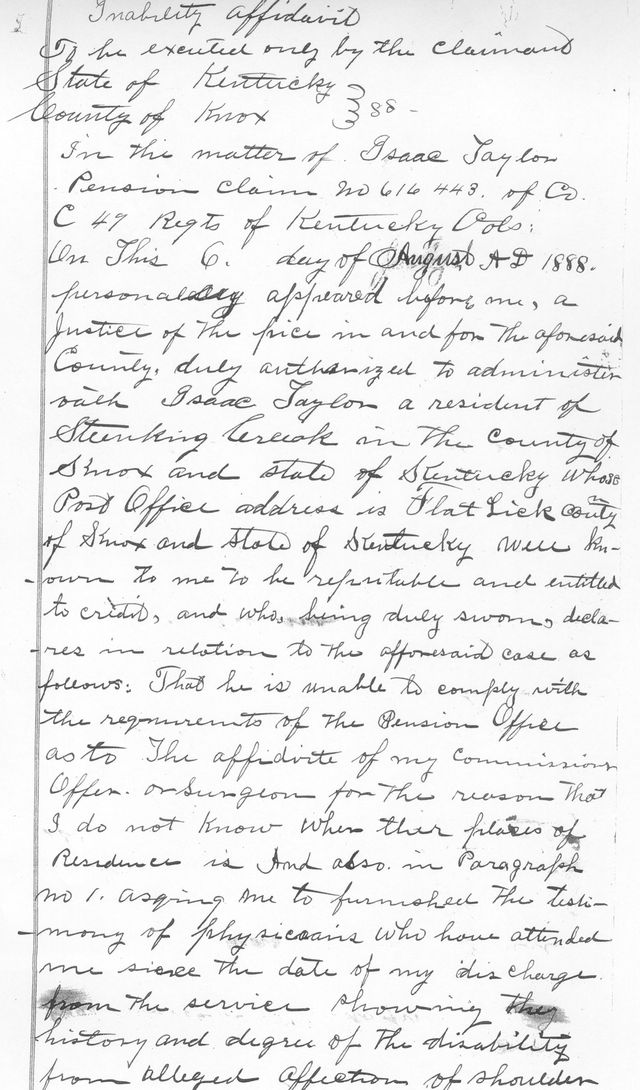 Inability Affidavit
To be excuted only by the claimant
State of Kentucky
County of Knox } 88 -
In the matter of Isaac Taylor
Pension Claim No 616 443. of Co.
C 49 Regts of Kentucky Vols:
On This 6. day of August AD 1888.
personaley appeared before me, a
Justice of the pice in and for the aforesaid
County, duly authorized to administer
oath Isaac Taylor a resident of
Steenking Creeak in the County of
Knox and state of Kentucky whose
Post Office address is Flat Lick conty
of Knox and state of Kentucky well kn-
-own to me to be reputable and entitled
to credit, and who, being duly sworn, decla-
-res in relation to the afforesaid case as
follows: That he is unable to comply with
the requirements of the Pension Office
as to The affidivte of my Commission
Offer. or Surgeon for the reason that
I do not Know wher ther places of
Residence is And also. in Paragraph
no 1. asging me to furnished the testi-
-mony of physicians who have attended
me since the date of my discharge
from the service showing they
history and degree of the disability
from alleged affection of shoulder